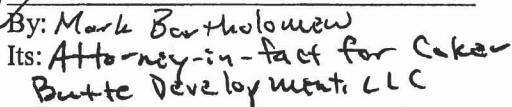 By: Mark Bartholomew
Its: Attorney-in-fact for Coker
Butte Development, LLC